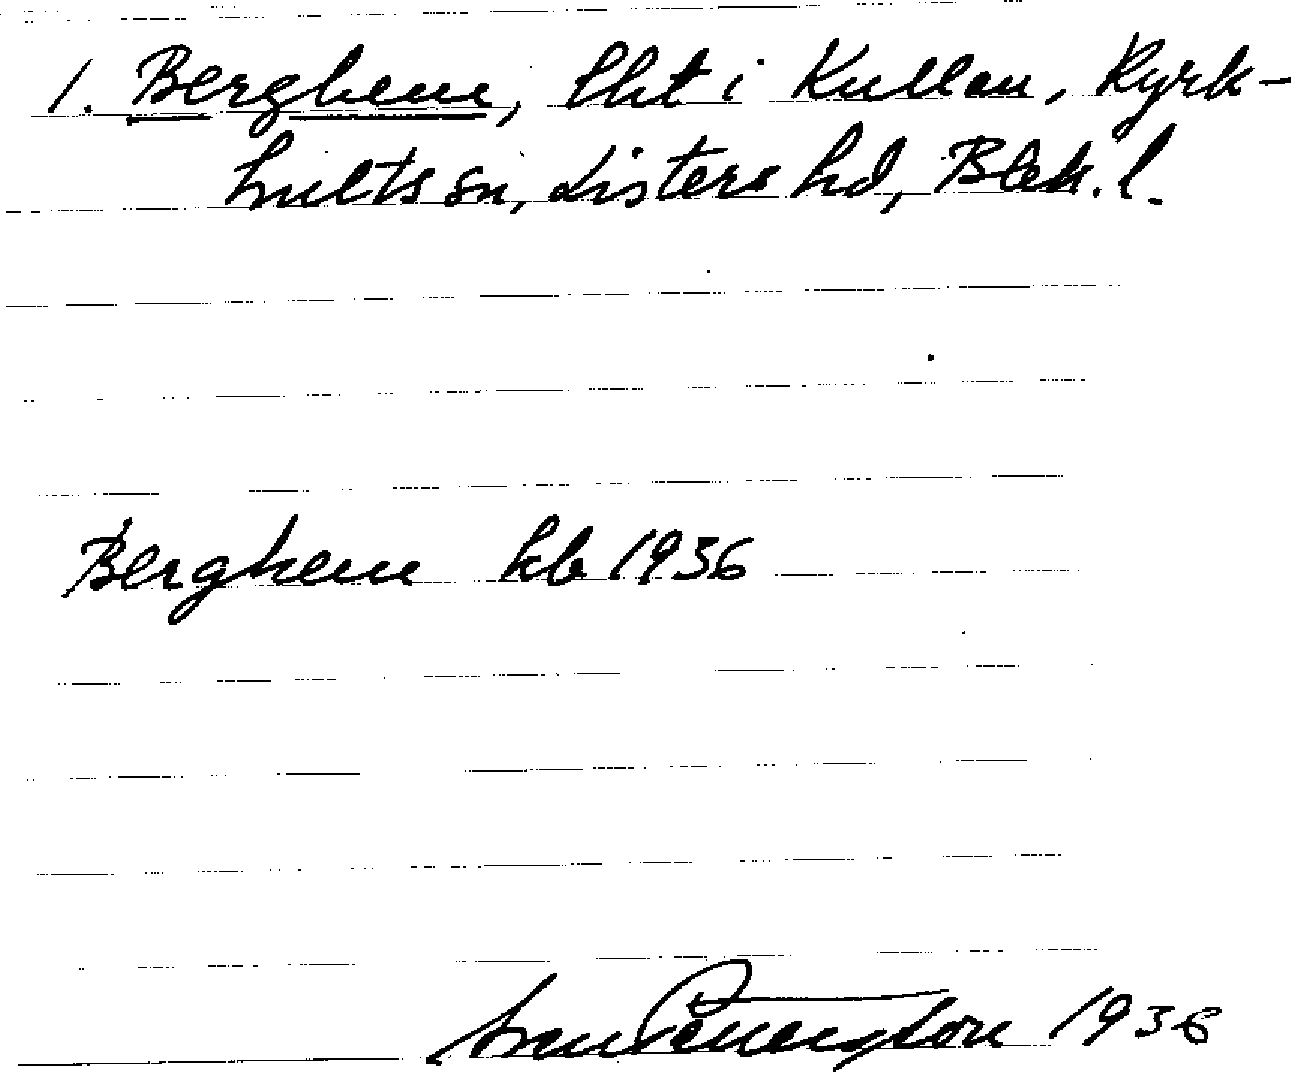 1. Berghem, lht i Kullen, Kyrk-
hults sn, Listers hd, Blek. l.
Berghem kb 1936
Sven Benson 1936